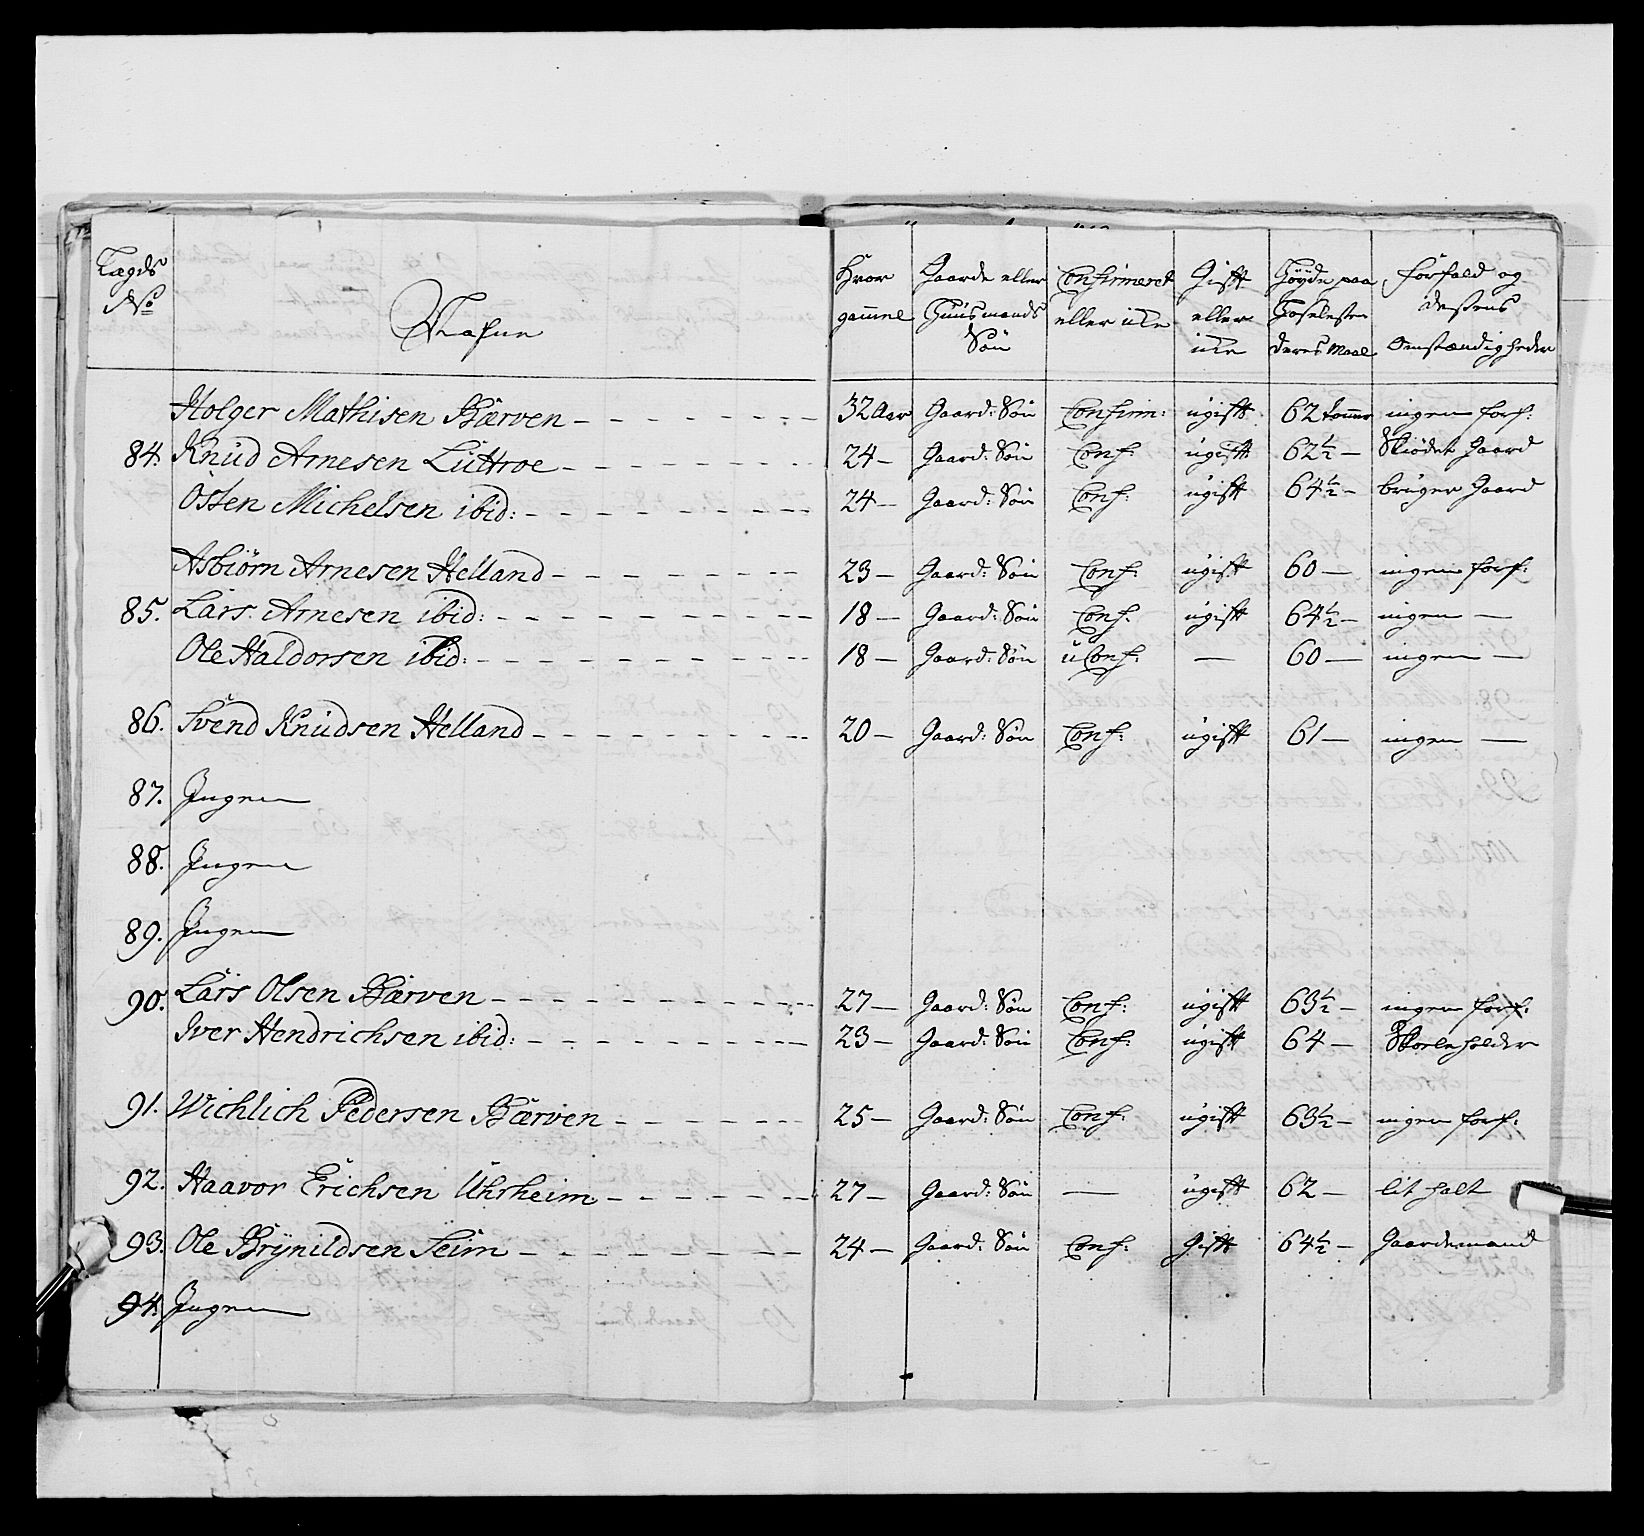 Lægds No Nafne Hvor gammel Gaards eller Huusmands Søn Confirmeret eller icke Gift eller icke Høyde paa Hoselesten deres Maal Forfald og dessens Omstændigheder
Holger Mathisen Bærven 32 Aar Gaard: Søn Confirm: ugift 62 tomer ingen forf:
84. Knud Arnesen Luttroe 24 Gaard: Søn Conf: ugift 62½ Skiødet Gaard
Osten Michelsen ibid: 24 Gaard: Søn Conf: ugift 64½ bruger Gaard
Asbiørn Arnesen Helland 23 Gaard: Søn Conf: ugift 60 ingen forf:
85. Lars Arnesen ibid: 18 Gaard: Søn Conf: ugift 64½ ingen —
Ole Haldorsen ibid: 18 Gaard: Søn uConf: — 60 ingen —
86. Svend Knudsen Helland 20 Gaard: Søn Conf: ugift 61 ingen —
87. Ingen
88. Ingen
89. Ingen
90. Lars Olsen Bærven 27 Gaard: Søn Conf: ugift 63½ ingen forf:
Iver Hendrichsen ibid: 23 Gaard: Søn Conf: ugift 64 Skoleholder
91. Wichlich Pedersen Bærven 25 Gaard: Søn Conf: ugift 63½ ingen forf:
92. Haavor Erichsen Uhrheim 27 Gaard: Søn — ugift 62 lit halt
93. Ole Brynildsen Seim 24 Gaard: Søn Conf: Gift 64½ Gaardemand
94. Ingen